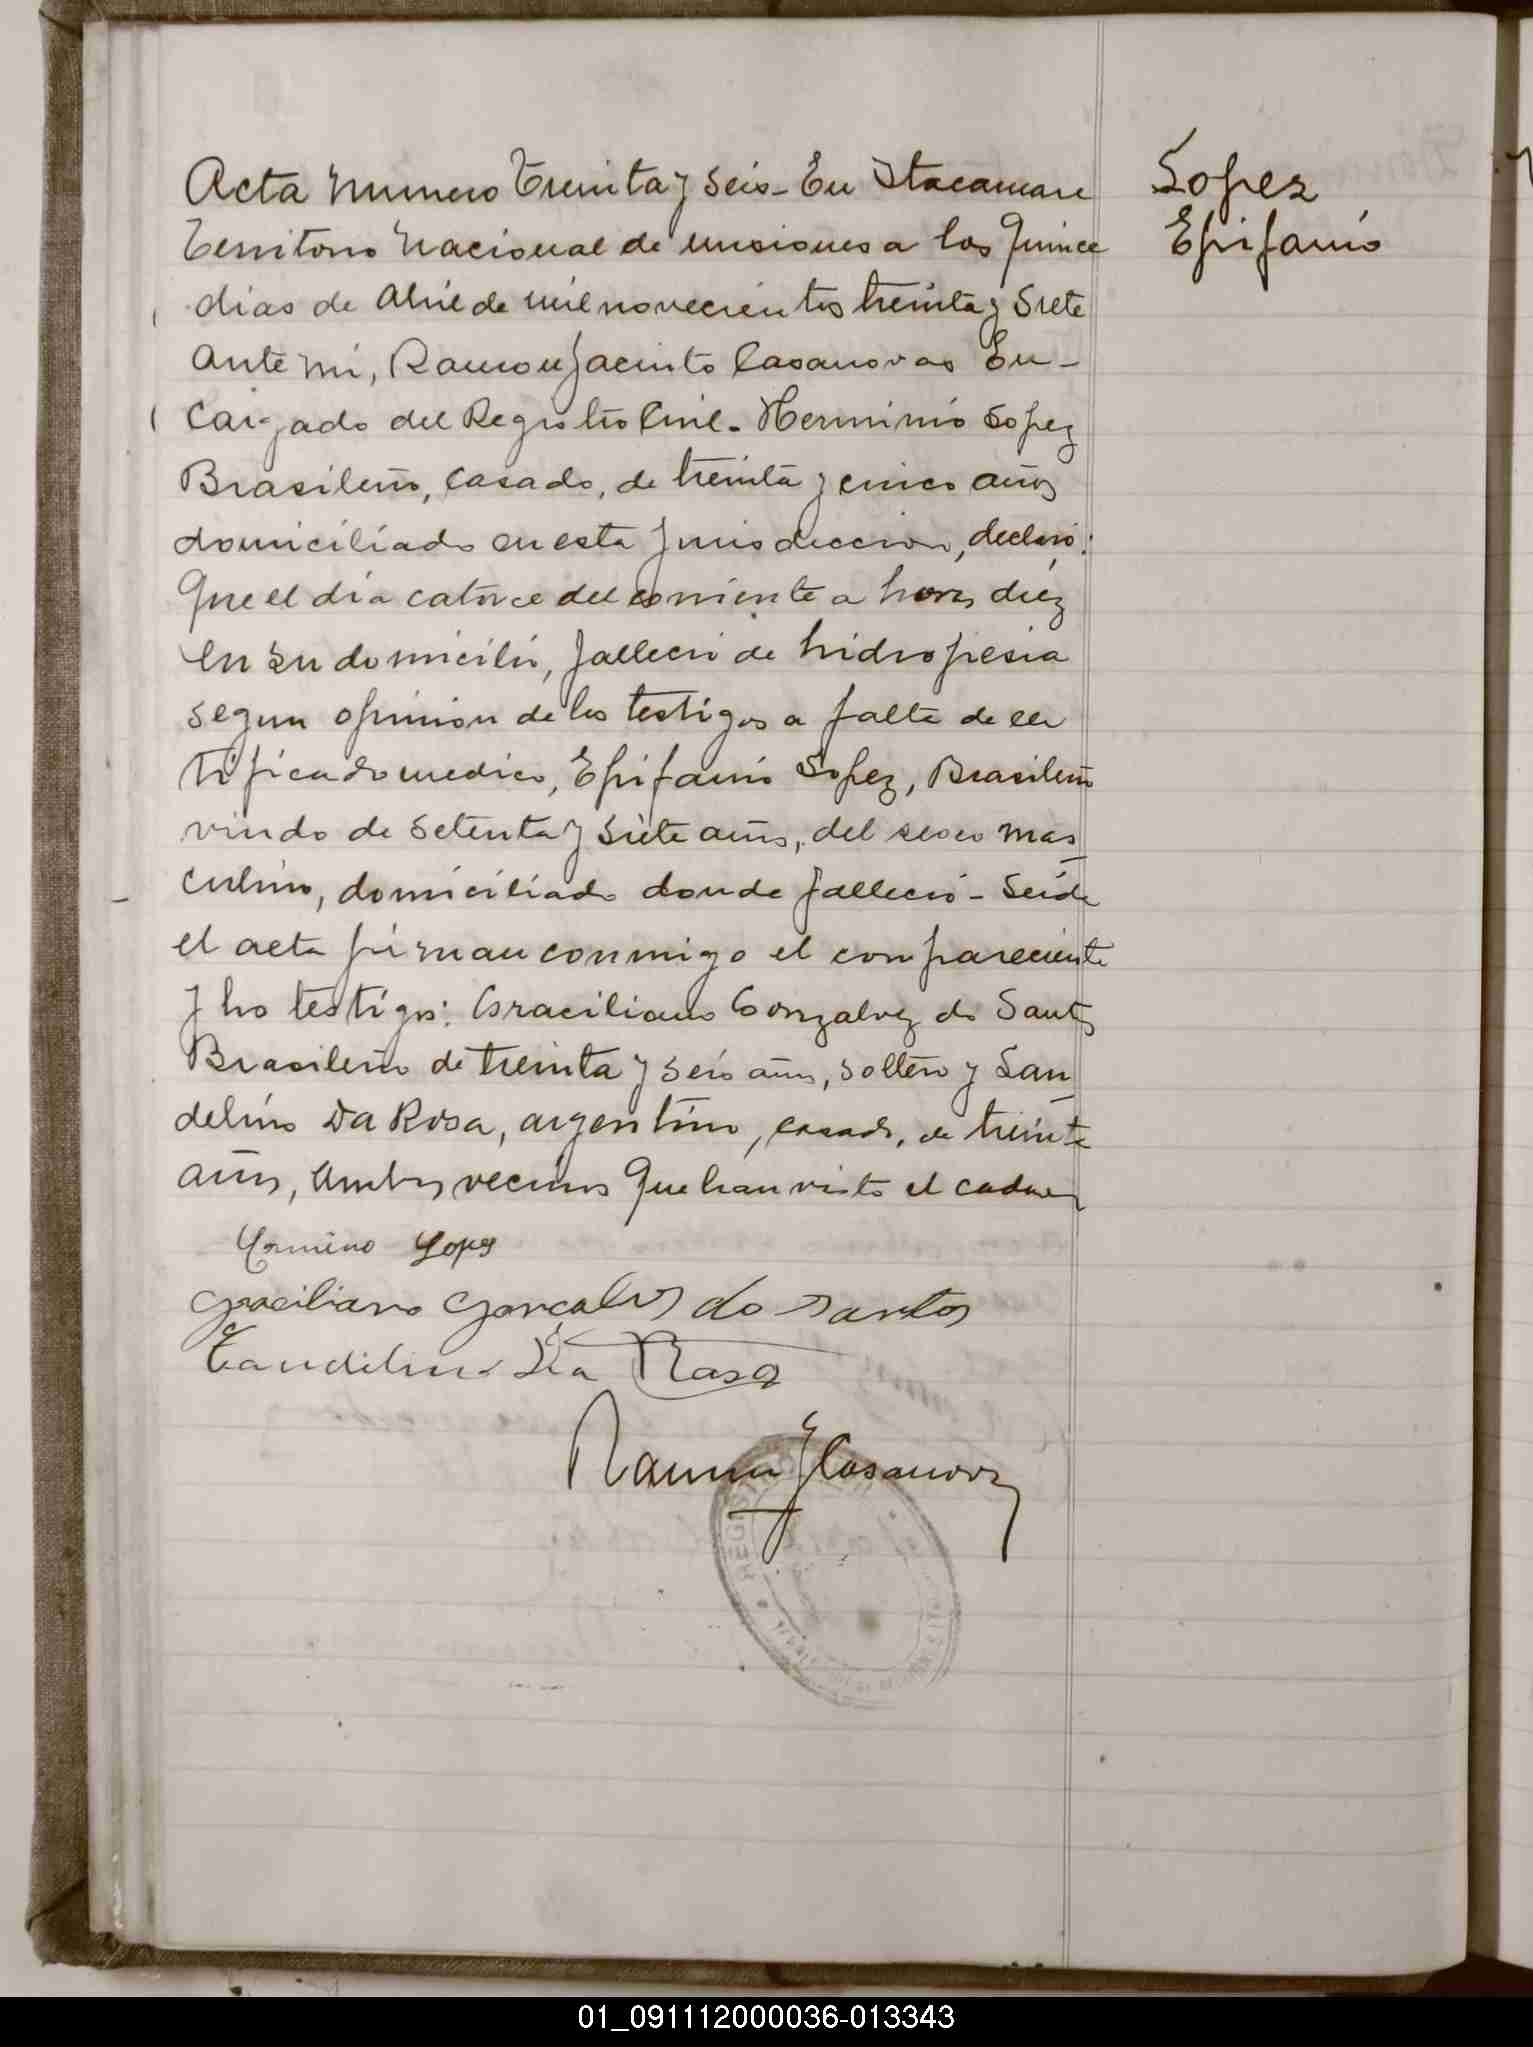 Acta Numero Treinta y Seis - En Itacaruare
Territorio Nacional de misiones a los Quince
dias de Abril de mil novecientos treinta y Siete
Ante mi, Ramon Jacinto Casanovas En-
Cargado del Registro Civil - Herminio Lopez
Brasileño, Casado, de treinta y cinco años
domiciliado en esta Jurisdiccion, declaró:
Que el dia catorce del corriente a horas diez
en su domicilio, falleció de hidropesia
segun opinion de los testigos a falta de cer
tificado medico, Epifanio Lopez, Brasileño
viudo de Setenta y Siete años, del sexo mas
culino, domiciliado donde falleció - Leida
el acta firman conmigo el compareciente
y los testigos: Graciliano Gonzalvez do Santos
Brasileño de treinta y seis años, soltero y Lan
delino Da Rosa, argentino, casado, de treinta
años, Ambos vecinos Que han visto el cadaver
Lopez
Epifanio
Lopes
Graciliano Goncalves do Santos
Da Rosa
Ramon J Casanovas
REGISTRO
01_091112000036-013343